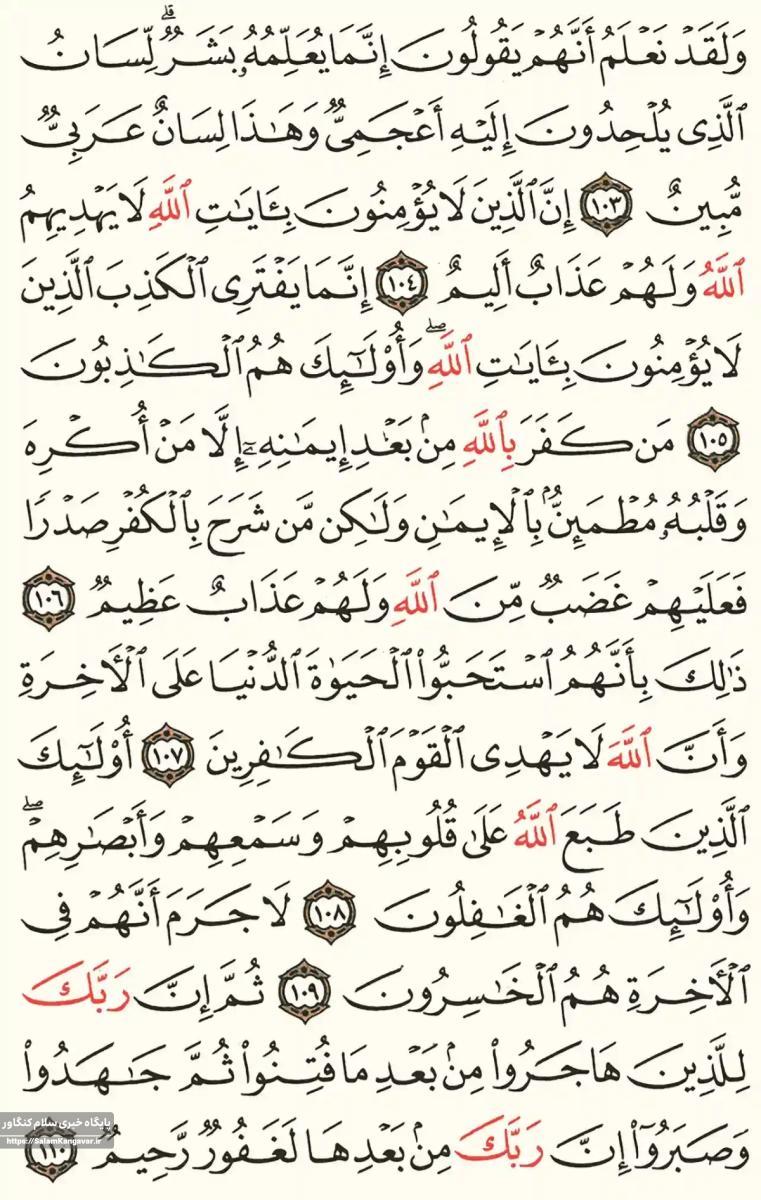 وَلَقَدۡ نَعۡلَمُ أَنَّهُمۡ يَقُولُونَ إِنَّمَا يُعَلِّمُهُۥ بَشَرٞۗ لِّسَانُ
ٱلَّذِي يُلۡحِدُونَ إِلَيۡهِ أَعۡجَمِيّٞ وَهَٰذَا لِسَانٌ عَرَبِيّٞ
مُّبِينٌ ١٠٣ إِنَّ ٱلَّذِينَ لَا يُؤۡمِنُونَ بِـَٔايَٰتِ ٱللَّهِ لَا يَهۡدِيهِمُ
ٱللَّهُ وَلَهُمۡ عَذَابٌ أَلِيمٌ ١٠٤ إِنَّمَا يَفۡتَرِي ٱلۡكَذِبَ ٱلَّذِينَ
لَا يُؤۡمِنُونَ بِـَٔايَٰتِ ٱللَّهِۖ وَأُوْلَٰٓئِكَ هُمُ ٱلۡكَٰذِبُونَ
١٠٥ مَن كَفَرَ بِٱللَّهِ مِنۢ بَعۡدِ إِيمَٰنِهِۦٓ إِلَّا مَنۡ أُكۡرِهَ
وَقَلۡبُهُۥ مُطۡمَئِنُّۢ بِٱلۡإِيمَٰنِ وَلَٰكِن مَّن شَرَحَ بِٱلۡكُفۡرِ صَدۡرٗا
فَعَلَيۡهِمۡ غَضَبٞ مِّنَ ٱللَّهِ وَلَهُمۡ عَذَابٌ عَظِيمٞ ١٠٦
ذَٰلِكَ بِأَنَّهُمُ ٱسۡتَحَبُّواْ ٱلۡحَيَوٰةَ ٱلدُّنۡيَا عَلَى ٱلۡأٓخِرَةِ
وَأَنَّ ٱللَّهَ لَا يَهۡدِي ٱلۡقَوۡمَ ٱلۡكَٰفِرِينَ ١٠٧ أُوْلَٰٓئِكَ
ٱلَّذِينَ طَبَعَ ٱللَّهُ عَلَىٰ قُلُوبِهِمۡ وَسَمۡعِهِمۡ وَأَبۡصَٰرِهِمۡۖ
وَأُوْلَٰٓئِكَ هُمُ ٱلۡغَٰفِلُونَ ١٠٨ لَا جَرَمَ أَنَّهُمۡ فِي
ٱلۡأٓخِرَةِ هُمُ ٱلۡخَٰسِرُونَ ١٠٩ ثُمَّ إِنَّ رَبَّكَ
لِلَّذِينَ هَاجَرُواْ مِنۢ بَعۡدِ مَا فُتِنُواْ ثُمَّ جَٰهَدُواْ
وَصَبَرُوٓاْ إِنَّ رَبَّكَ مِنۢ بَعۡدِهَا لَغَفُورٞ رَّحِيمٞ ١١٠
پایگاه خبری سلام کنگاور
https://SalamKangavar.ir